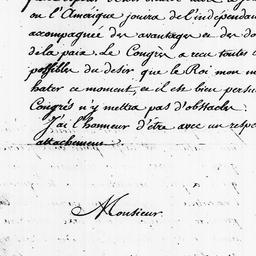 où l'Amérique jouira de l'indépendan
accompagnée des avantages et des do
de la paix. Le Congrès a reçu toutes l
possibles du desir que le Roi mon m
hater ce moment, et il est bien persu
Congrés n'y mettra pas d'obstacles.
J'ai l'honneur d'être avec un respe
attachement
Monsieur